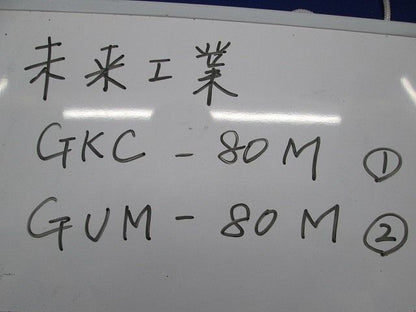 未来工業
GKC-80M ①
GUM-80M ②